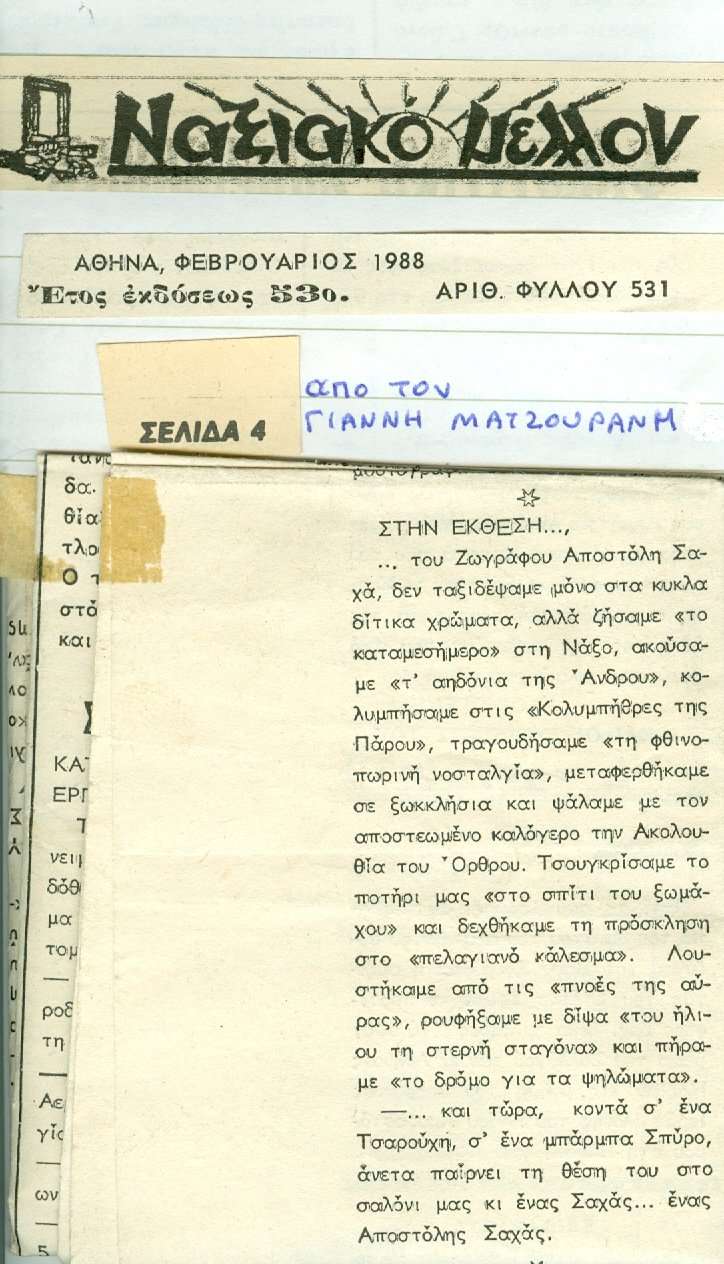 Ναξιακό Μέλλον
ΑΘΗΝΑ, ΦΕΒΡΟΥΑΡΙΟΣ 1988
Ἔτος ἐκδόσεως 53ο. ΑΡΙΘ. ΦΥΛΛΟΥ 531
απο τον
ΣΕΛΙΔΑ 4 ΓΙΑΝΝΗ ΜΑΤΖΟΥΡΑΝΗ
ΣΤΗΝ ΕΚΘΕΣΗ...,
... του Ζωγράφου Αποστόλη Σα-
χά, δεν ταξιδέψαμε μόνο στα κυκλα
δίτικα χρώματα, αλλά ζήσαμε «το
καταμεσήμερο» στη Νάξο, ακούσα-
με «τ' αηδόνια της Άνδρου», κο-
λυμπήσαμε στις «Κολυμπήθρες της
Πάρου», τραγουδήσαμε «τη φθινο-
πωρινή νοσταλγία», μεταφερθήκαμε
σε ξωκκλήσια και ψάλαμε με τον
αποστεωμένο καλόγερο την Ακολου-
θία του Όρθρου. Τσουγκρίσαμε το
ποτήρι μας «στο σπίτι του ξωμά-
χου» και δεχθήκαμε τη πρόσκληση
στο «πελαγιανό κάλεσμα». Λου-
στήκαμε από τις «πνοές της αύ-
ρας», ρουφήξαμε με δίψα «του ήλι-
ου τη στερνή σταγόνα» και πήρα-
με «το δρόμο για τα ψηλώματα».
—... και τώρα, κοντά σ' ένα
Τσαρούχη, σ' ένα μπάρμπα Σπύρο,
άνετα παίρνει τη θέση του στο
σαλόνι μας κι ένας Σαχάς... ένας
Αποστόλης Σαχάς.
δα.
θία
τλο
Ο τ
στό
και
ΚΑΤ
ΕΡΓ
Τ
νειμ
δόθ
μα
τομ
—
ροδ
τη
—
Αε
γίο
—
ων
—
5